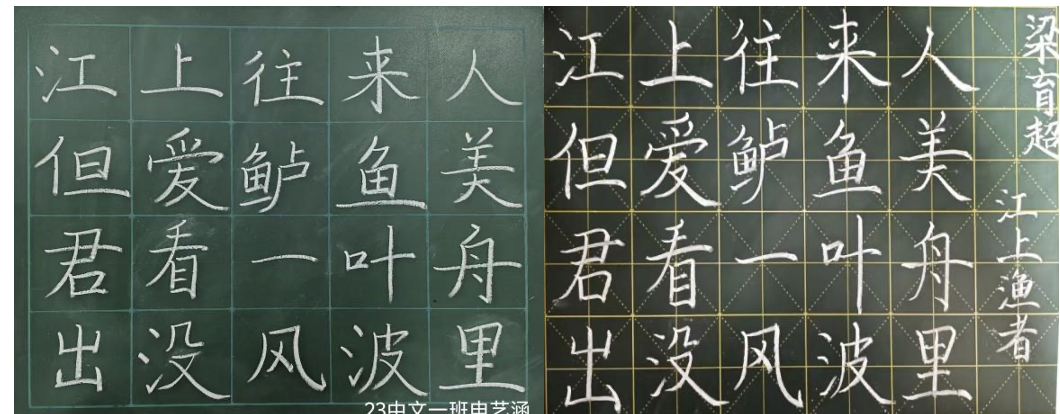 江上往来人
但爱鲈鱼美
君看一叶舟
出没风波里
23中文一班申艺涵
江上往来人
但爱鲈鱼美
君看一叶舟
出没风波里
梁育超
江上渔者